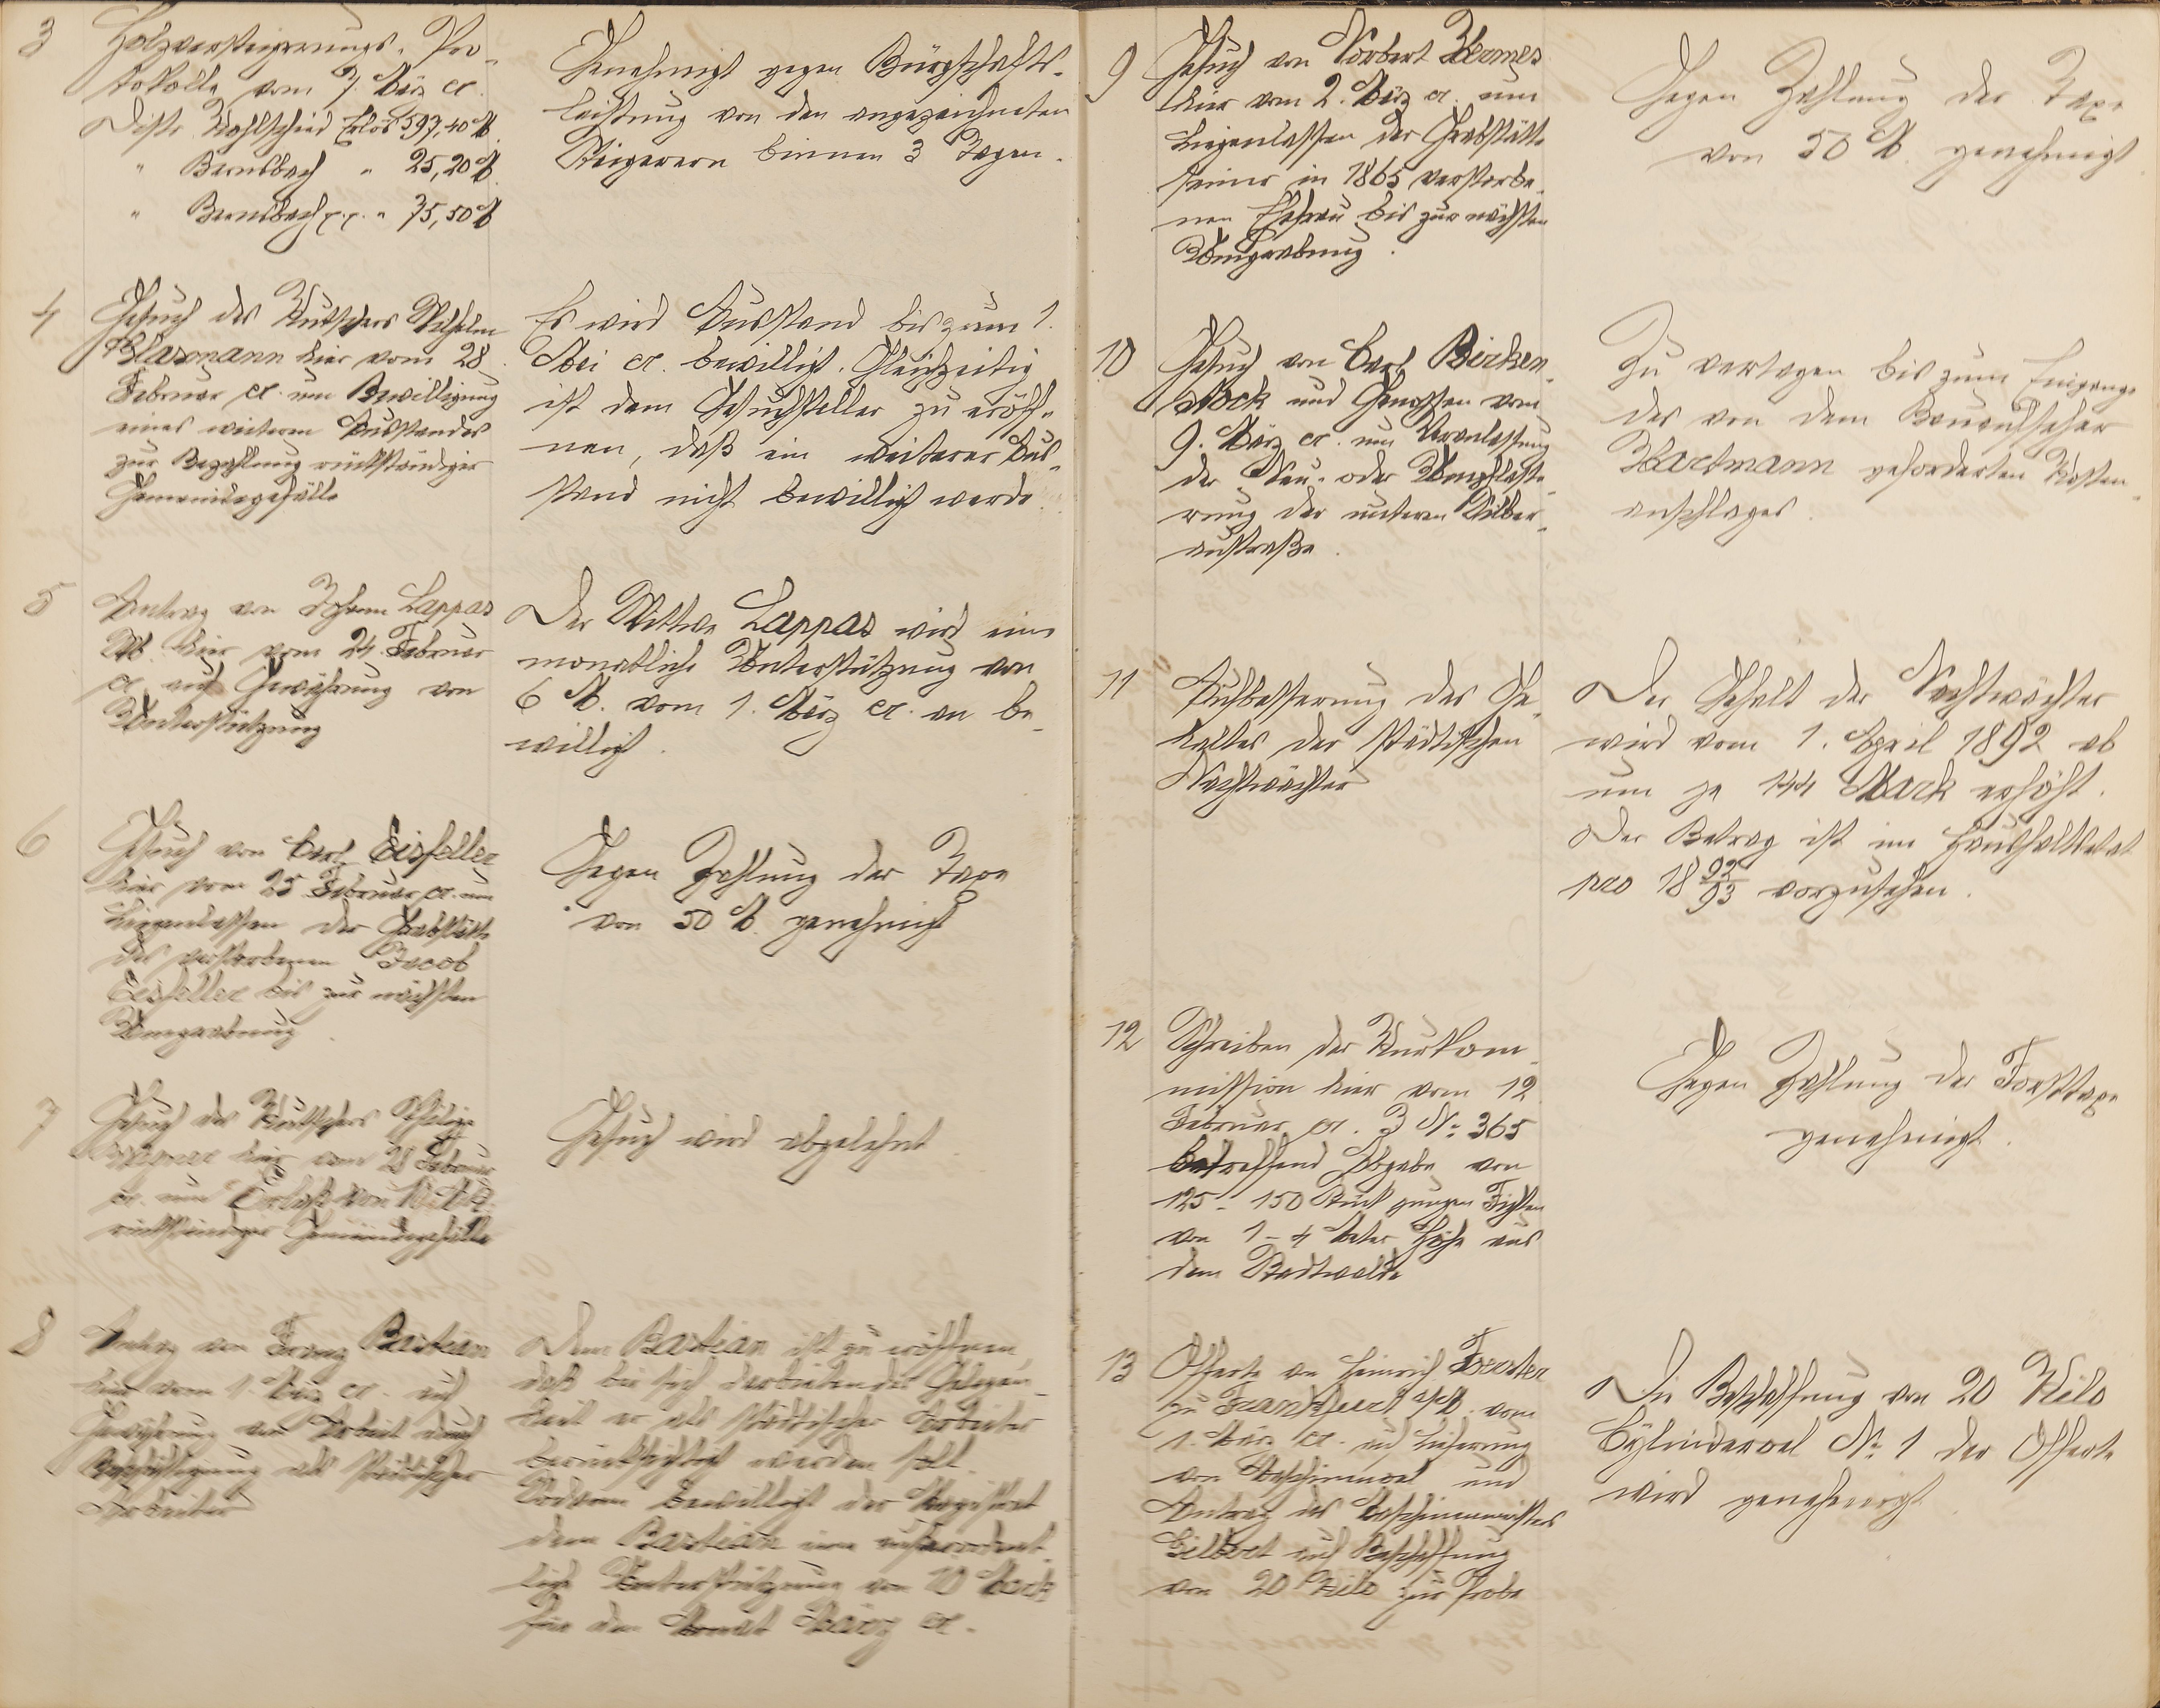 3
Holzversteigerungs-Pro-
tokolle vom 7. März cr.
Distr. Kohlschied Erlös 597,40 M
" Bernsbach " 25,20 M
" Bernsbach p.p. " 75,50 M
Genehmigt gegen Bürgschafts-
leistung von den angezeichneten
Steigerern binnen 3 Tagen.
4
Gesuch des Kutschers Wilhelm
Blasmann hier vom 28.
Februar cr. um Bewilligung
eines weiteren Ausstandes
zur Bezahlung rückständiger
Gemeindegefälle
Es wird Ausstand bis zum 1.
Mai cr. bewilligt. Gleichzeitig
ist dem Gesuchsteller zu eröff-
nen, daß ein weiterer Aus-
stand nicht bewilligt werde.
5
Antrag von Johann Lappas
Wb. hier vom 24. Februar
cr. auf Gewährung von
Unterstützung
Der Wittwe Lappas wird eine
monatliche Unterstützung von
6 M. vom 1. März cr. an be-
willigt.
6
Gesuch von Carl Eisfeller
hier vom 25 Februar cr. um
Liegenlassen der Grabstätte
des verstorbenen Jacob
Eisfeller bis zur nächsten
Umgrabung.
Gegen Zahlung der Taxe
von 50 M. genehmigt
7
Gesuch des Kutschers
hier vom 28 Februar
cr. um Erlaß von
rückständiger Gemeindegefälle
Gesuch wird abgelehnt.
8
Antrag von Franz Bastian
hier vom 1. März cr. auf
Gewährung von Arbeit durch
Beschäftigung als städtischer
Arbeiter
Dem Bastian ist zu eröffnen,
daß bei sich darbietender Gelegen-
heit er als städtischer Arbeiter
berücksichtigt werden soll.
Sodann bewilligt der Magistrat
dem Bastian eine außerordent-
liche Unterstützung von 10 Mark
für den Monat März cr.
9
Gesuch von Norbert Hermes
hier vom 2. März cr. um
Liegenlassen der Grabstätte
seiner in 1865 verstorbe-
nen Ehefrau bis zur nächsten
Umgrabung.
Gegen Zahlung der Taxe
von 50 M. genehmigt.
10
Gesuch von Carl Birken-
stock und Genossen vom
9. März cr. um Veranlassung
der Neu- oder Umpflaste-
rung der unteren Silber-
austraße.
Zu vertagen bis zum Eingange
des von dem Bauaufseher
Hartmann geforderten Kosten-
anschlages.
11
Aufbesserung des Ge-
haltes der städtischen
Nachtwächter
Der Gehalt der Nachtwächter
wird vom 1. April 1892 ab
um je 144 Mark erhöht.
Der Betrag ist im Haushaltsetat
pro 18 92/93 vorzusehen.
12
Schreiben der Kurkom-
mission hier vom 12.
Februar cr. J No: 365
betreffend Abgabe von
125-150 Stück jungen Fichten
von 1-4 Meter Höhe aus
dem Stadtwalde
Gegen Zahlung der Forsttaxe
genehmigt.
13
Offerte von Heinrich
zu Frankfurt a/M. vom
1. März cr. auf Lieferung
von Maschinenoel und
Antrag des Maschinenmeisters
Gilbert auf Beschaffung
von 20 Kilo zur Probe
Die Beschaffung von 20 Kilo
Cylinderoel No: 1 der Offerte
wird genehmigt.